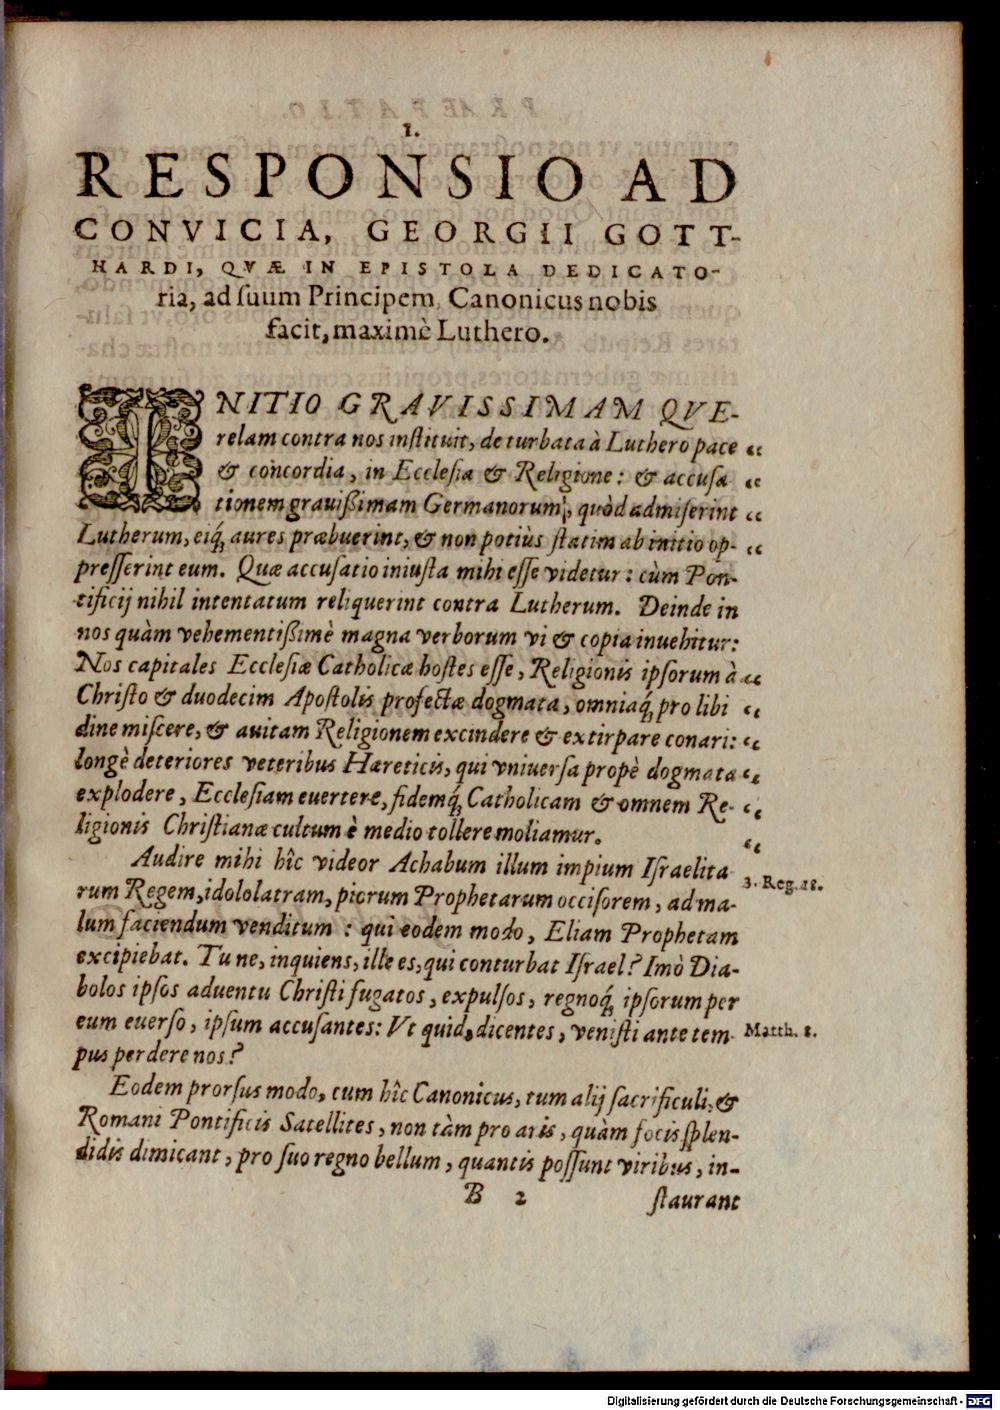 1.
RESPONSIO AD
CONVICIA, GEORGII GOTT-
HARDI, QVÆ IN EPISTOLA DEDICATO-
ria, ad suum Principem, Canonicus nobis
facit, maximè Luthero.
INITIO GRAVISSIMAM QVE-
relam contra nos instituit, de turbata à Luthero pace „
& concordia, in Ecclesia & Religione: & accusa „
tionem grauißimam Germanorum, quòd admiserint „
Lutherum, eiq́ aures præbuerint, & non potiùs statim ab initio op- „
presserint eum. Quæ accusatio iniusta mihi esse videtur: cùm Pon-
tificij nihil intentatum reliquerint contra Lutherum. Deinde in
nos quàm vehementißimè magna verborum vi & copia inuehitur:
Nos capitales Ecclesiæ Catholicæ hostes esse, Religionis ipsorum à „
Christo & duodecim Apostolis profectæ dogmata, omniaq́ pro libi „
dine miscere, & auitam Religionem excindere & extirpare conari: „
longè deteriores veteribus Hæreticis, qui vniuersa propè dogmata „
explodere, Ecclesiam euertere, fidemq́ Catholicam & omnem Re- „
ligionis Christianæ cultum è medio tollere moliamur. „
Audire mihi hîc videor Achabum illum impium Israelita
3. Reg. 18.
rum Regem, idololatram, piorum Prophetarum occisorem, ad ma-
lum faciendum venditum : qui eodem modo, Eliam Prophetam
excipiebat. Tu ne, inquiens, ille es, qui conturbat Israel? Imò Dia-
bolos ipsos aduentu Christi fugatos, expulsos, regnoq́ ipsorum per
eum euerso, ipsum accusantes: Vt quid, dicentes, venisti ante tem-
Matth. 8.
pus perdere nos?
Eodem prorsus modo, cum hîc Canonicus, tum alij sacrificuli, &
Romani Pontificis Satellites, non tàm pro aris, quàm focis splen-
didis dimicant, pro suo regno bellum, quantis possunt viribus, in-
B 2 staurant
Digitalisierung gefördert durch die Deutsche Forschungsgemeinschaft - DFG